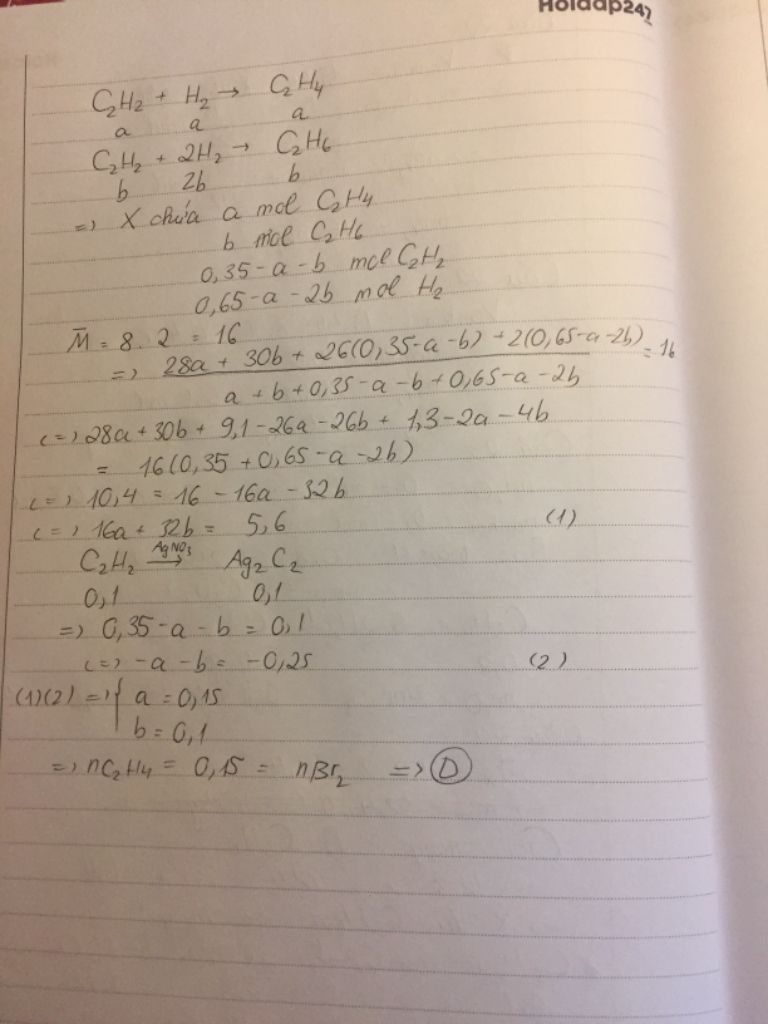 Hoidap247
C₂H₂ + H₂ → C₂H₄
a a a
C₂H₂ + 2H₂ → C₂H₆
b 2b b
=> X chứa a mol C₂H₄
b mol C₂H₆
0,35 - a - b mol C₂H₂
0,65 - a - 2b mol H₂
M̄ = 8.2 = 16
=> (28a + 30b + 26(0,35-a-b) + 2(0,65-a-2b)) / (a + b + 0,35 - a - b + 0,65 - a - 2b) = 16
<=> 28a + 30b + 9,1 - 26a - 26b + 1,3 - 2a - 4b
= 16(0,35 + 0,65 - a - 2b)
<=> 10,4 = 16 - 16a - 32b
<=> 16a + 32b = 5,6 (1)
C₂H₂ —AgNO₃→ Ag₂C₂
0,1 0,1
=> 0,35 - a - b = 0,1
<=> -a - b = -0,25 (2)
(1)(2) => { a = 0,15
b = 0,1
=> nC₂H₄ = 0,15 = nBr₂ => D